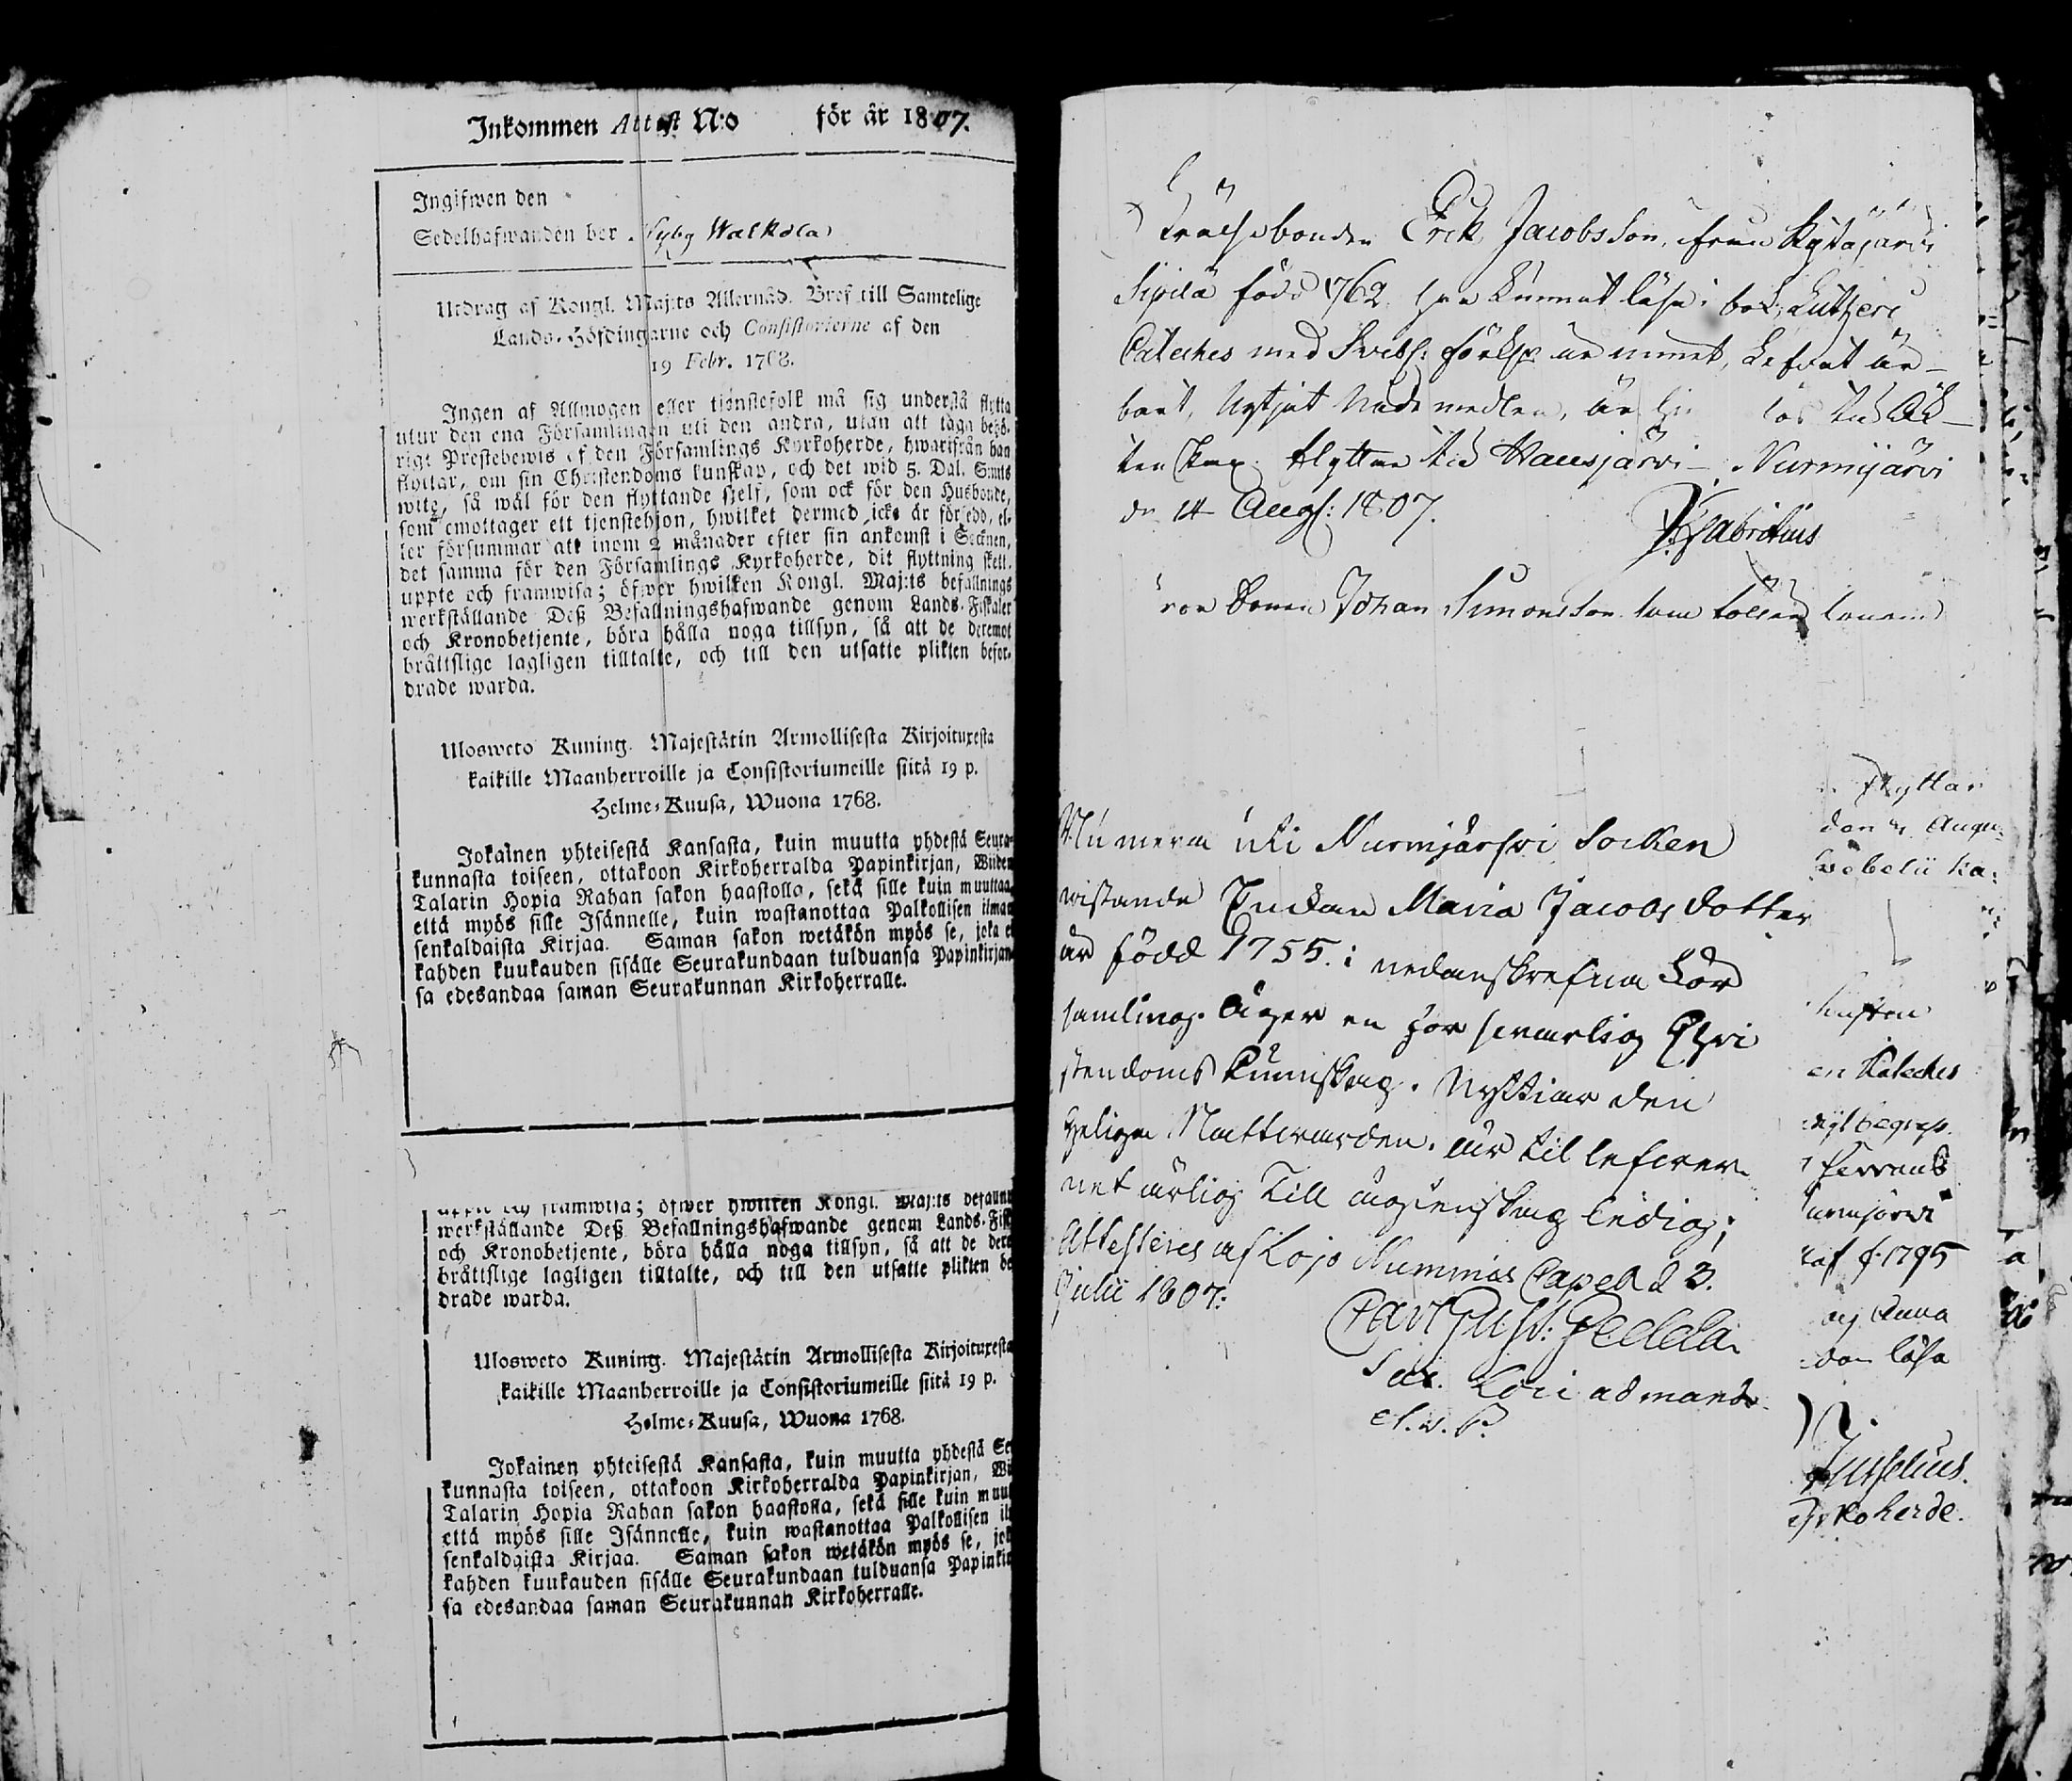 Inkommen Attest N:o för år 1807.
Ingifwen den
Sedelhafwanden bor Walkola
Utdrag af Kongl. Maj:ts Allernåd. Bref till Samtelige
Lands-Höfdingarne och Consistorierne af den
19 Febr. 1768.
Ingen af Allmogen eller tjenstefolk må sig understå flytta
utur den ena Församlingen uti den andra, utan att taga behö-
rigt Prestebewis af den Församlings Kyrkoherde, hwarifrån han
flyttar, om sin Christendoms kunskap, och det wid 5. Dal. Smts
wite, så wäl för den flyttande sjelf, som ock för den Husbonde,
som emottager ett tjenstehjon, hwilket dermed icke är försedd, el-
ler försummar att inom 2 månader efter sin ankomst i Socknen,
det samma för den Församlings Kyrkoherde, dit flyttning skett,
uppte och framwisa; öfwer hwilken Kongl. Maj:ts befallnings
werkställande Deß Befallningshafwande genom Lands-Fiskaler
och Kronobetjente, böra hålla noga tillsyn, så att de deremot
bråttslige lagligen tilltalte, och till den utsatte plikten befor-
drade warda.
Ulosweto Kuning. Majestätin Armollisesta Kirjoituxesta
kaikille Maanherroille ja Consistoriumeille siitä 19 p.
Helme-Kuusa, Wuona 1768.
Jokainen yhteisestä Kansasta, kuin muutta yhdestä Seura-
kunnasta toiseen, ottakoon Kirkoherralda Papinkirjan, Wiiden
Talarin Hopia Rahan sakon haastolla, sekä sille kuin muuttaa,
että myös sille Isännelle, kuin wastanottaa Palkollisen ilman
senkaldaista Kirjaa. Saman sakon wetäkön myös se, joka ei
kahden kuukauden sisälle Seurakundaan tulduansa Papinkirjan-
sa edesandaa saman Seurakunnan Kirkoherralle.
framwisa; öfwer hwilken Kongl. Maj:ts befalln
werkställande Deß Befallningshafwande genom Lands-Fisk
och Kronobetjente, böra hålla noga tillsyn, så att de dere
bråttslige lagligen tilltalte, och till den utsatte plikten be
drade warda.
Ulosweto Kuning. Majestätin Armollisesta Kirjoituxesta
kaikille Maanherroille ja Consistoriumeille siitä 19 p.
Helme-Kuusa, Wuona 1768.
Jokainen yhteisestä Kansasta, kuin muutta yhdestä Se
kunnasta toiseen, ottakoon Kirkoherralda Papinkirjan, Wi
Talarin Hopia Rahan sakon haastolla, sekä sille kuin muu
että myös sille Isännelle, kuin wastanottaa Palkollisen il
senkaldaista Kirjaa. Saman sakon wetäkön myös se, jok
kahden kuukauden sisälle Seurakundaan tulduansa Papinkir
sa edesandaa saman Seurakunnan Kirkoherralle.
bonden Erik Jacobsson, från Kytäjärvi
Sipilä född 1762 har kunnat läsa i bok, Lutheri
Cateches med Sveb: förkl: ur minnet, Lefvat är-
bart, Nytjat Nådemedlen, är lös til Äk-
tenskap. flyttar til Hausjärvi. Nurmijärvi
d. 14 Aug: 1807.
Fabritius
Johan Simonsson som
Numera uti Nurmijärfvi Socken
vistande Enkan Maria Jacobs dotter
är född 1755. i nedanskrefna För
samling. äger en försvarlig Chri
stendoms kunnskap. Nyttiar den
Heliga Nattvarden. är til lefver-
net ärlig Till ägtenskap ledig;
Attesteres af Lojo Nummis Capell d 3.
Julii 1807:
Carl Gust: Gedda
Sac. Loci admand.
flyttar
den Augu-
en Kateches
begrep.
Herrans
urmijärvi
af f. 1795
Anna
läsa
Juselius.
Kyrkoherde.